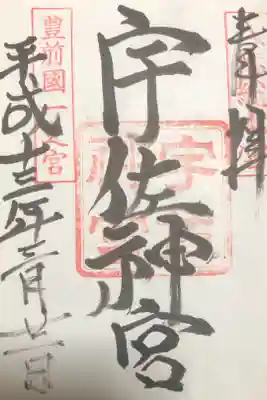 奉拝
宇佐神宮
宇佐神宮
豊前國一宮
平成十三年三月廿一日